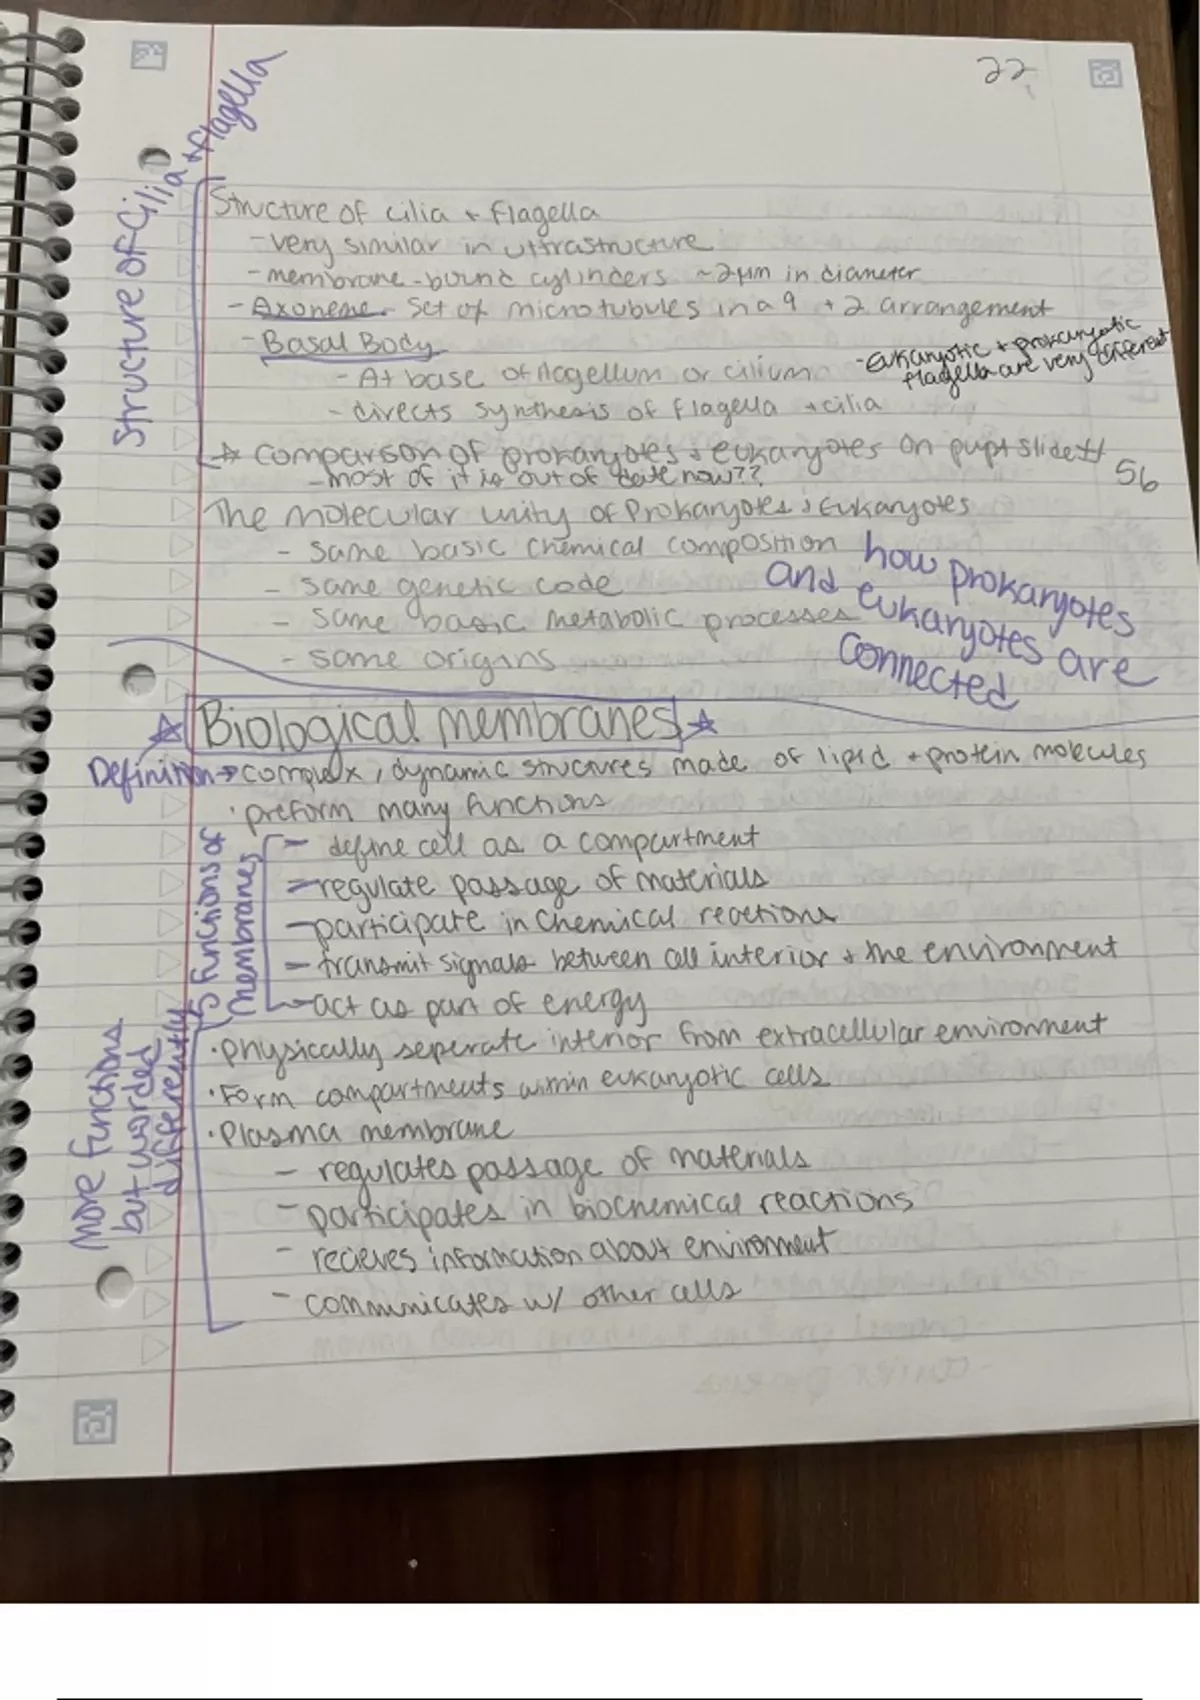 22
Structure of Cilia + flagella
Structure of cilia + flagella
- very similar in ultrastructure
- membrane-bound cylinders ~2μm in diameter
- Axoneme - set of microtubules in a 9 + 2 arrangement
- Basal Body
- At base of flagellum or cilium
- directs synthesis of flagella + cilia
- Eukaryotic + prokaryotic
flagella are very different
☆ comparison of prokaryotes + eukaryotes on pwpt slide #
56
- most of it is out of date now??
The molecular unity of Prokaryotes + Eukaryotes
- same basic chemical composition
- same genetic code
- same basic metabolic processes
- same origins
how prokaryotes
and eukaryotes are
connected
☆ Biological membranes ☆
Definition → complex, dynamic structures made of lipid + protein molecules
· preform many functions
5 functions of
membranes
- define cell as a compartment
- regulate passage of materials
- participate in chemical reactions
- transmit signals between cell interior + the environment
- act as part of energy
More functions
but worded
differently
· physically seperate interior from extracellular environment
· Form compartments within eukaryotic cells
· Plasma membrane
- regulates passage of materials
- participates in biochemical reactions
- recieves information about environment
- communicates w/ other cells